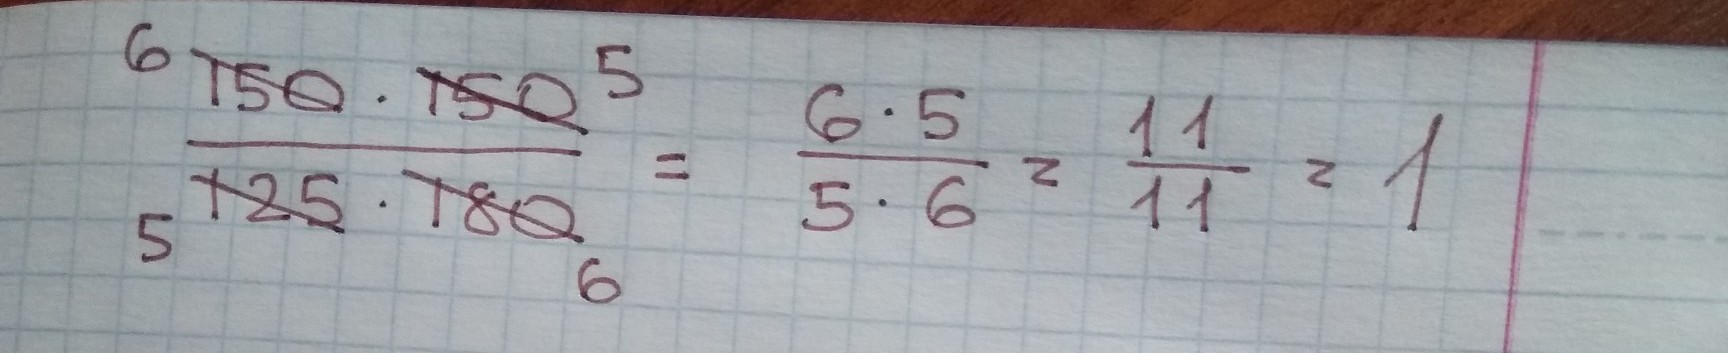 6 150 · 150 5
5 125 · 180 6
= 6 · 5 / 5 · 6 = 11 / 11 = 1